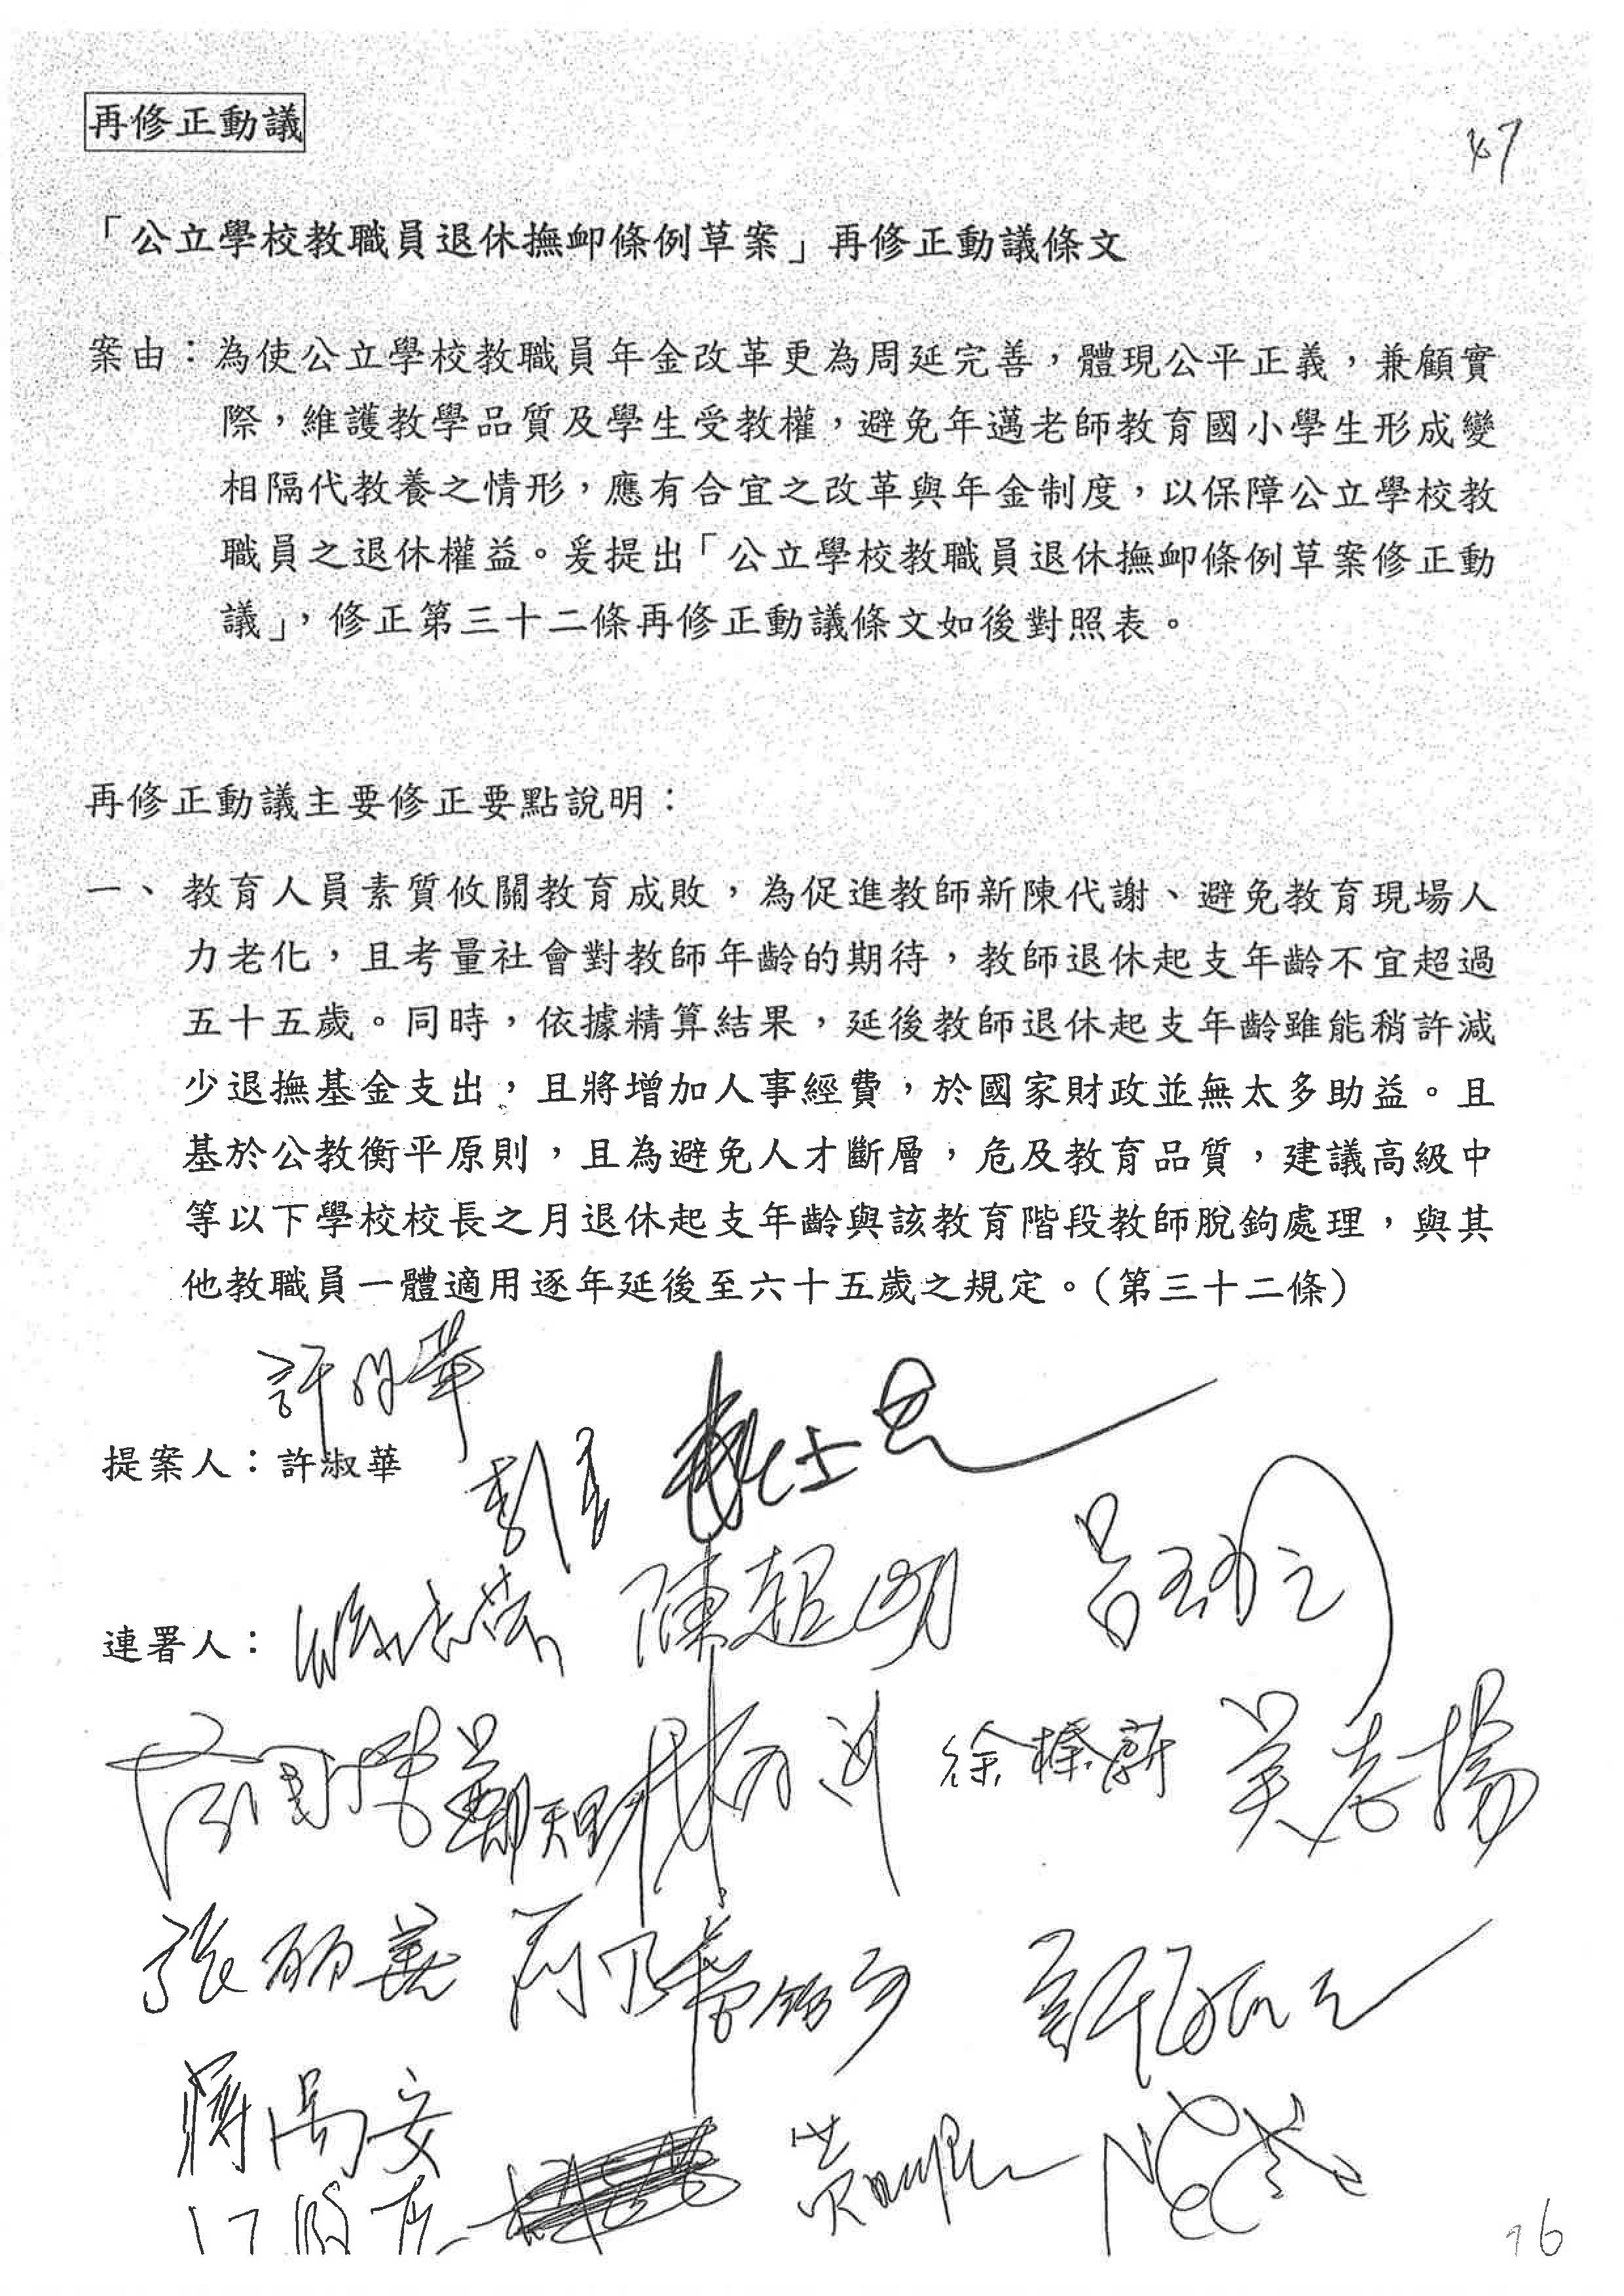 再修正動議
47
「公立學校教職員退休撫卹條例草案」再修正動議條文
案由：為使公立學校教職員年金改革更為周延完善，體現公平正義，兼顧實
際，維護教學品質及學生受教權，避免年邁老師教育國小學生形成變
相隔代教養之情形，應有合宜之改革與年金制度，以保障公立學校教
職員之退休權益。爰提出「公立學校教職員退休撫卹條例草案修正動
議」，修正第三十二條再修正動議條文如後對照表。
再修正動議主要修正要點說明：
一、教育人員素質攸關教育成敗，為促進教師新陳代謝、避免教育現場人
力老化，且考量社會對教師年齡的期待，教師退休起支年齡不宜超過
五十五歲。同時，依據精算結果，延後教師退休起支年齡雖能稍許減
少退撫基金支出，且將增加人事經費，於國家財政並無太多助益。且
基於公教衡平原則，且為避免人才斷層，危及教育品質，建議高級中
等以下學校校長之月退休起支年齡與該教育階段教師脫鉤處理，與其
他教職員一體適用逐年延後至六十五歲之規定。（第三十二條）
提案人：許淑華
連署人：
陳超明
呂玉玲
鄭天財
徐榛蔚
吳志揚
張麗善
蔣萬安